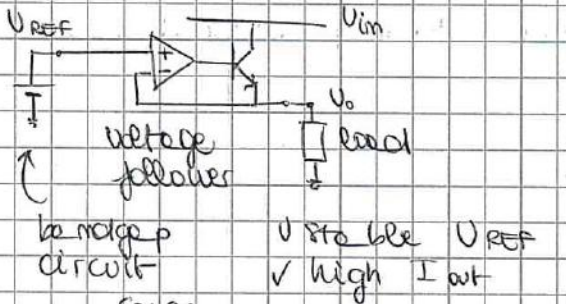 VREF
Vin
+
-
Vo
voltage
follower
load
bandgap
circuit
√ stable VREF
√ high I out